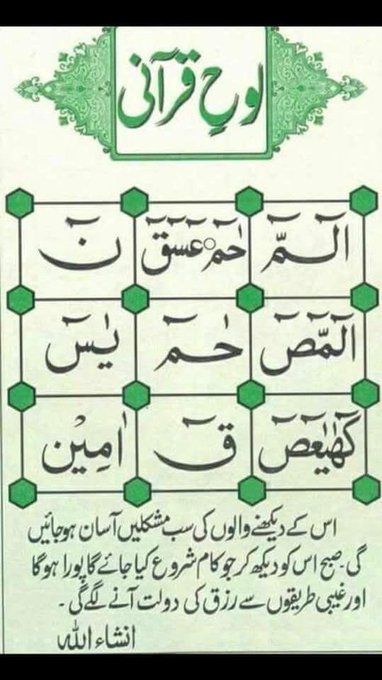 لوحِ قرآنی
الٓمّٓ حٰمٓ ۝ عٓسٓقٓ نٓ
الٓمّٓصٓ حٰمٓ یٰسٓ
کٓھٰیٰعٓصٓ قٓ اٰمِیْن
اس کے دیکھنے والوں کی سب مشکلیں آسان ہو جائیں
گی۔ صبح اس کو دیکھ کر جو کام شروع کیا جائے گا پورا ہو گا
اور غیبی طریقوں سے رزق کی دولت آنے لگے گی۔
انشاء اللہ